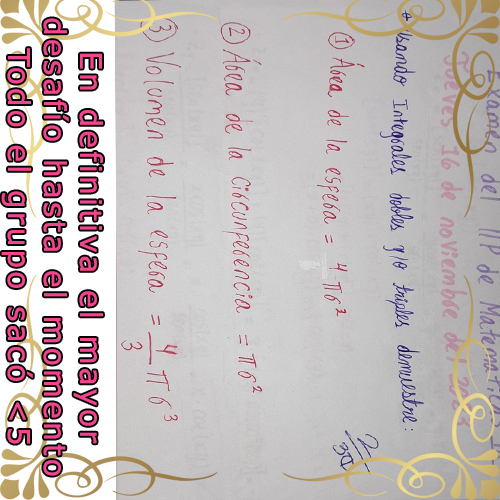 Examen del IIP de Matemá
Jueves 16 de noviembre del
* Usando Integrales dobles y/o triples demuestre:
① Área de la esfera = 4 πr²
② Área de la circunferencia = πr²
③ Volumen de la esfera = 4/3 π r³
En definitiva el mayor
desafío hasta el momento
Todo el grupo sacó <5